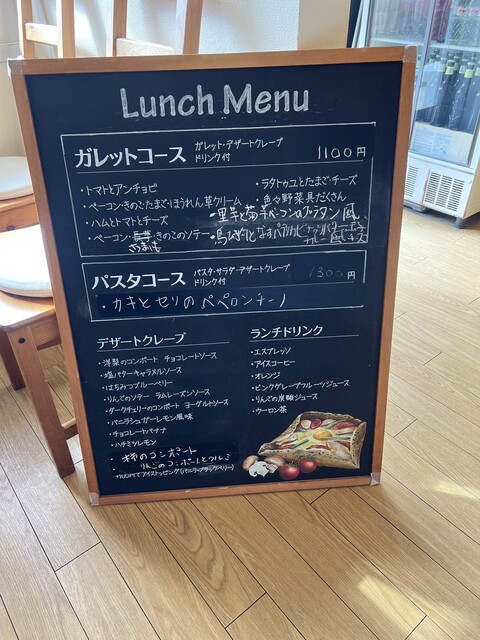 Lunch Menu
ガレットコース ガレット・デザートクレープ ドリンク付 1100円
・トマトとアンチョビ
・ベーコン・きのこ・たまご・ほうれん草クリーム
・ハムとトマトとチーズ
・ベーコン・長芋・きのこのソテー
さつまいも
・ラタトゥユとたまご・チーズ
・色々野菜具だくさん
・里芋と菊芋ベーコンのグラタン風
パスタコース パスタ・サラダ・デザートクレープ ドリンク付 1300円
・カキとセリのペペロンチーノ
デザートクレープ
・洋梨のコンポート チョコレートソース
・塩バターキャラメルソース
・はちみつブルーベリー
・りんごのソテー ラムレーズンソース
・ダークチェリーのコンポート ヨーグルトソース
・バニラシュガーレモン風味
・チョコレートバナナ
・ハチミツレモン
・柿のコンポート
・りんごのコンポートとクルミ
+100円でアイストッピング(バニラorブラックベリー)
ランチドリンク
・エスプレッソ
・アイスコーヒー
・オレンジ
・ピンクグレープフルーツジュース
・りんごの炭酸ジュース
・ウーロン茶